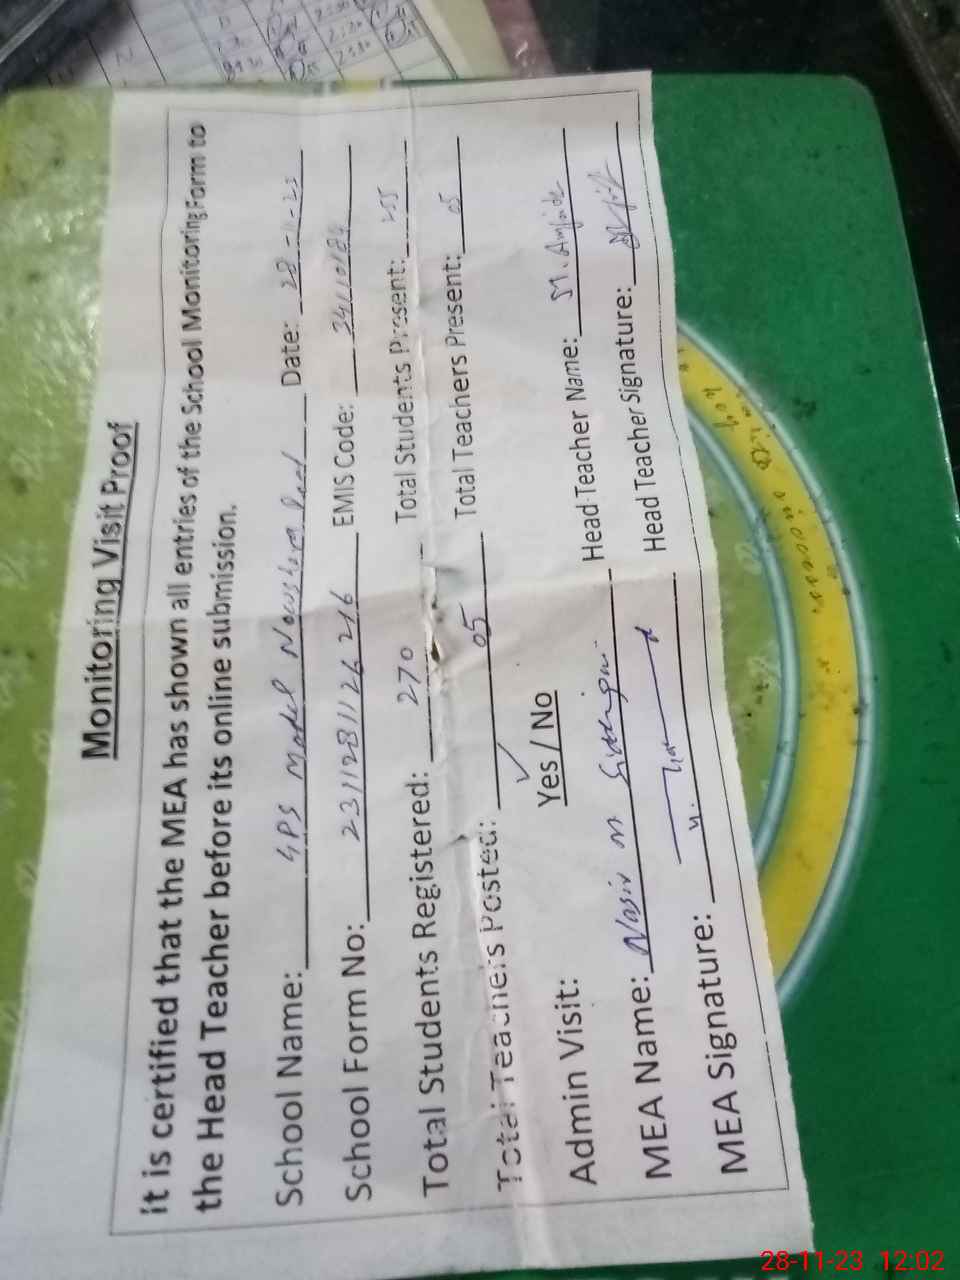 Monitoring Visit Proof
it is certified that the MEA has shown all entries of the School Monitoring Form to
the Head Teacher before its online submission.
School Name: GPS Model Nowshera Date: 28-11-23
School Form No: 2311281126216 EMIS Code: 34110184
Total Students Registered: 270 Total Students Present:
Total Teachers Posted: 05 Total Teachers Present: 05
Admin Visit: Yes / No
MEA Name: Nasir Head Teacher Name:
MEA Signature: Head Teacher Signature:
28-11-23 12:02